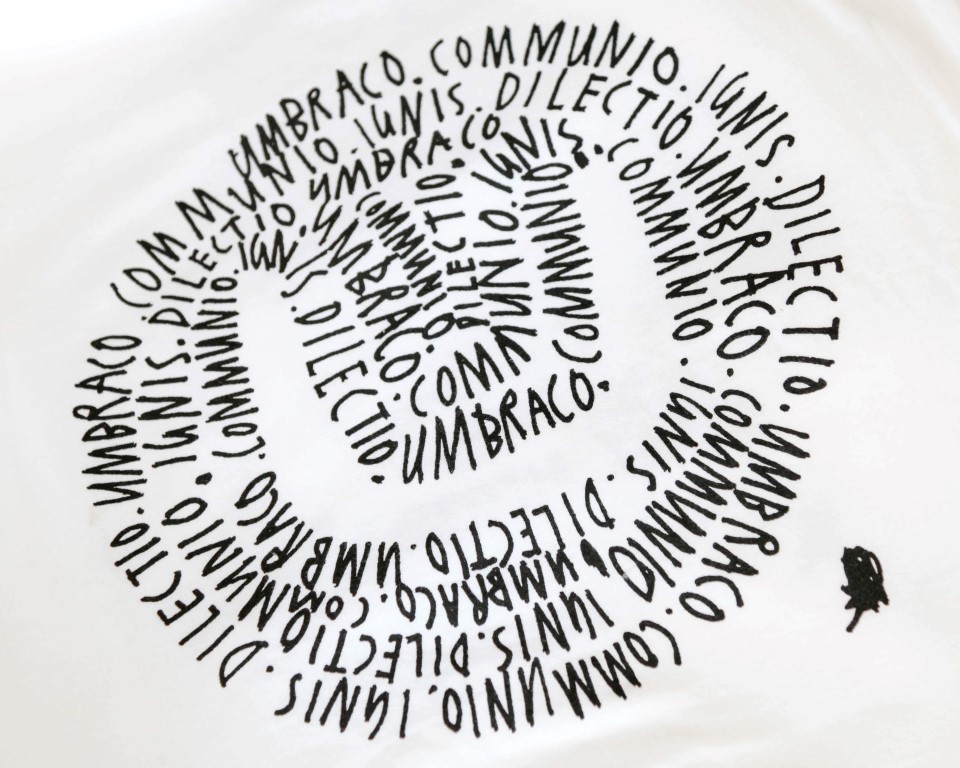 UMBRACO. COMMUNIO. IGNIS. DILECTIO. UMBRACO. COMMUNIO. IGNIS. DILECTIO. UMBRACO
COMMUNIO. IGNIS. DILECTIO. UMBRACO. COMMUNIO. IGNIS. DILECTIO. COMMUNIO. IGNIS. DILECTIO
UMBRACO. IGNIS. COMMUNIO. IGNIS. DILECTIO. UMBRACO. COMMUNIO. DILECTIO. UMBRACO. COMMUNIO.
IGNIS DILECTIO. UMBRACO. COMMUNIO
UMBRACO. COMMUNIO. DILECTIO. COMMUNIO